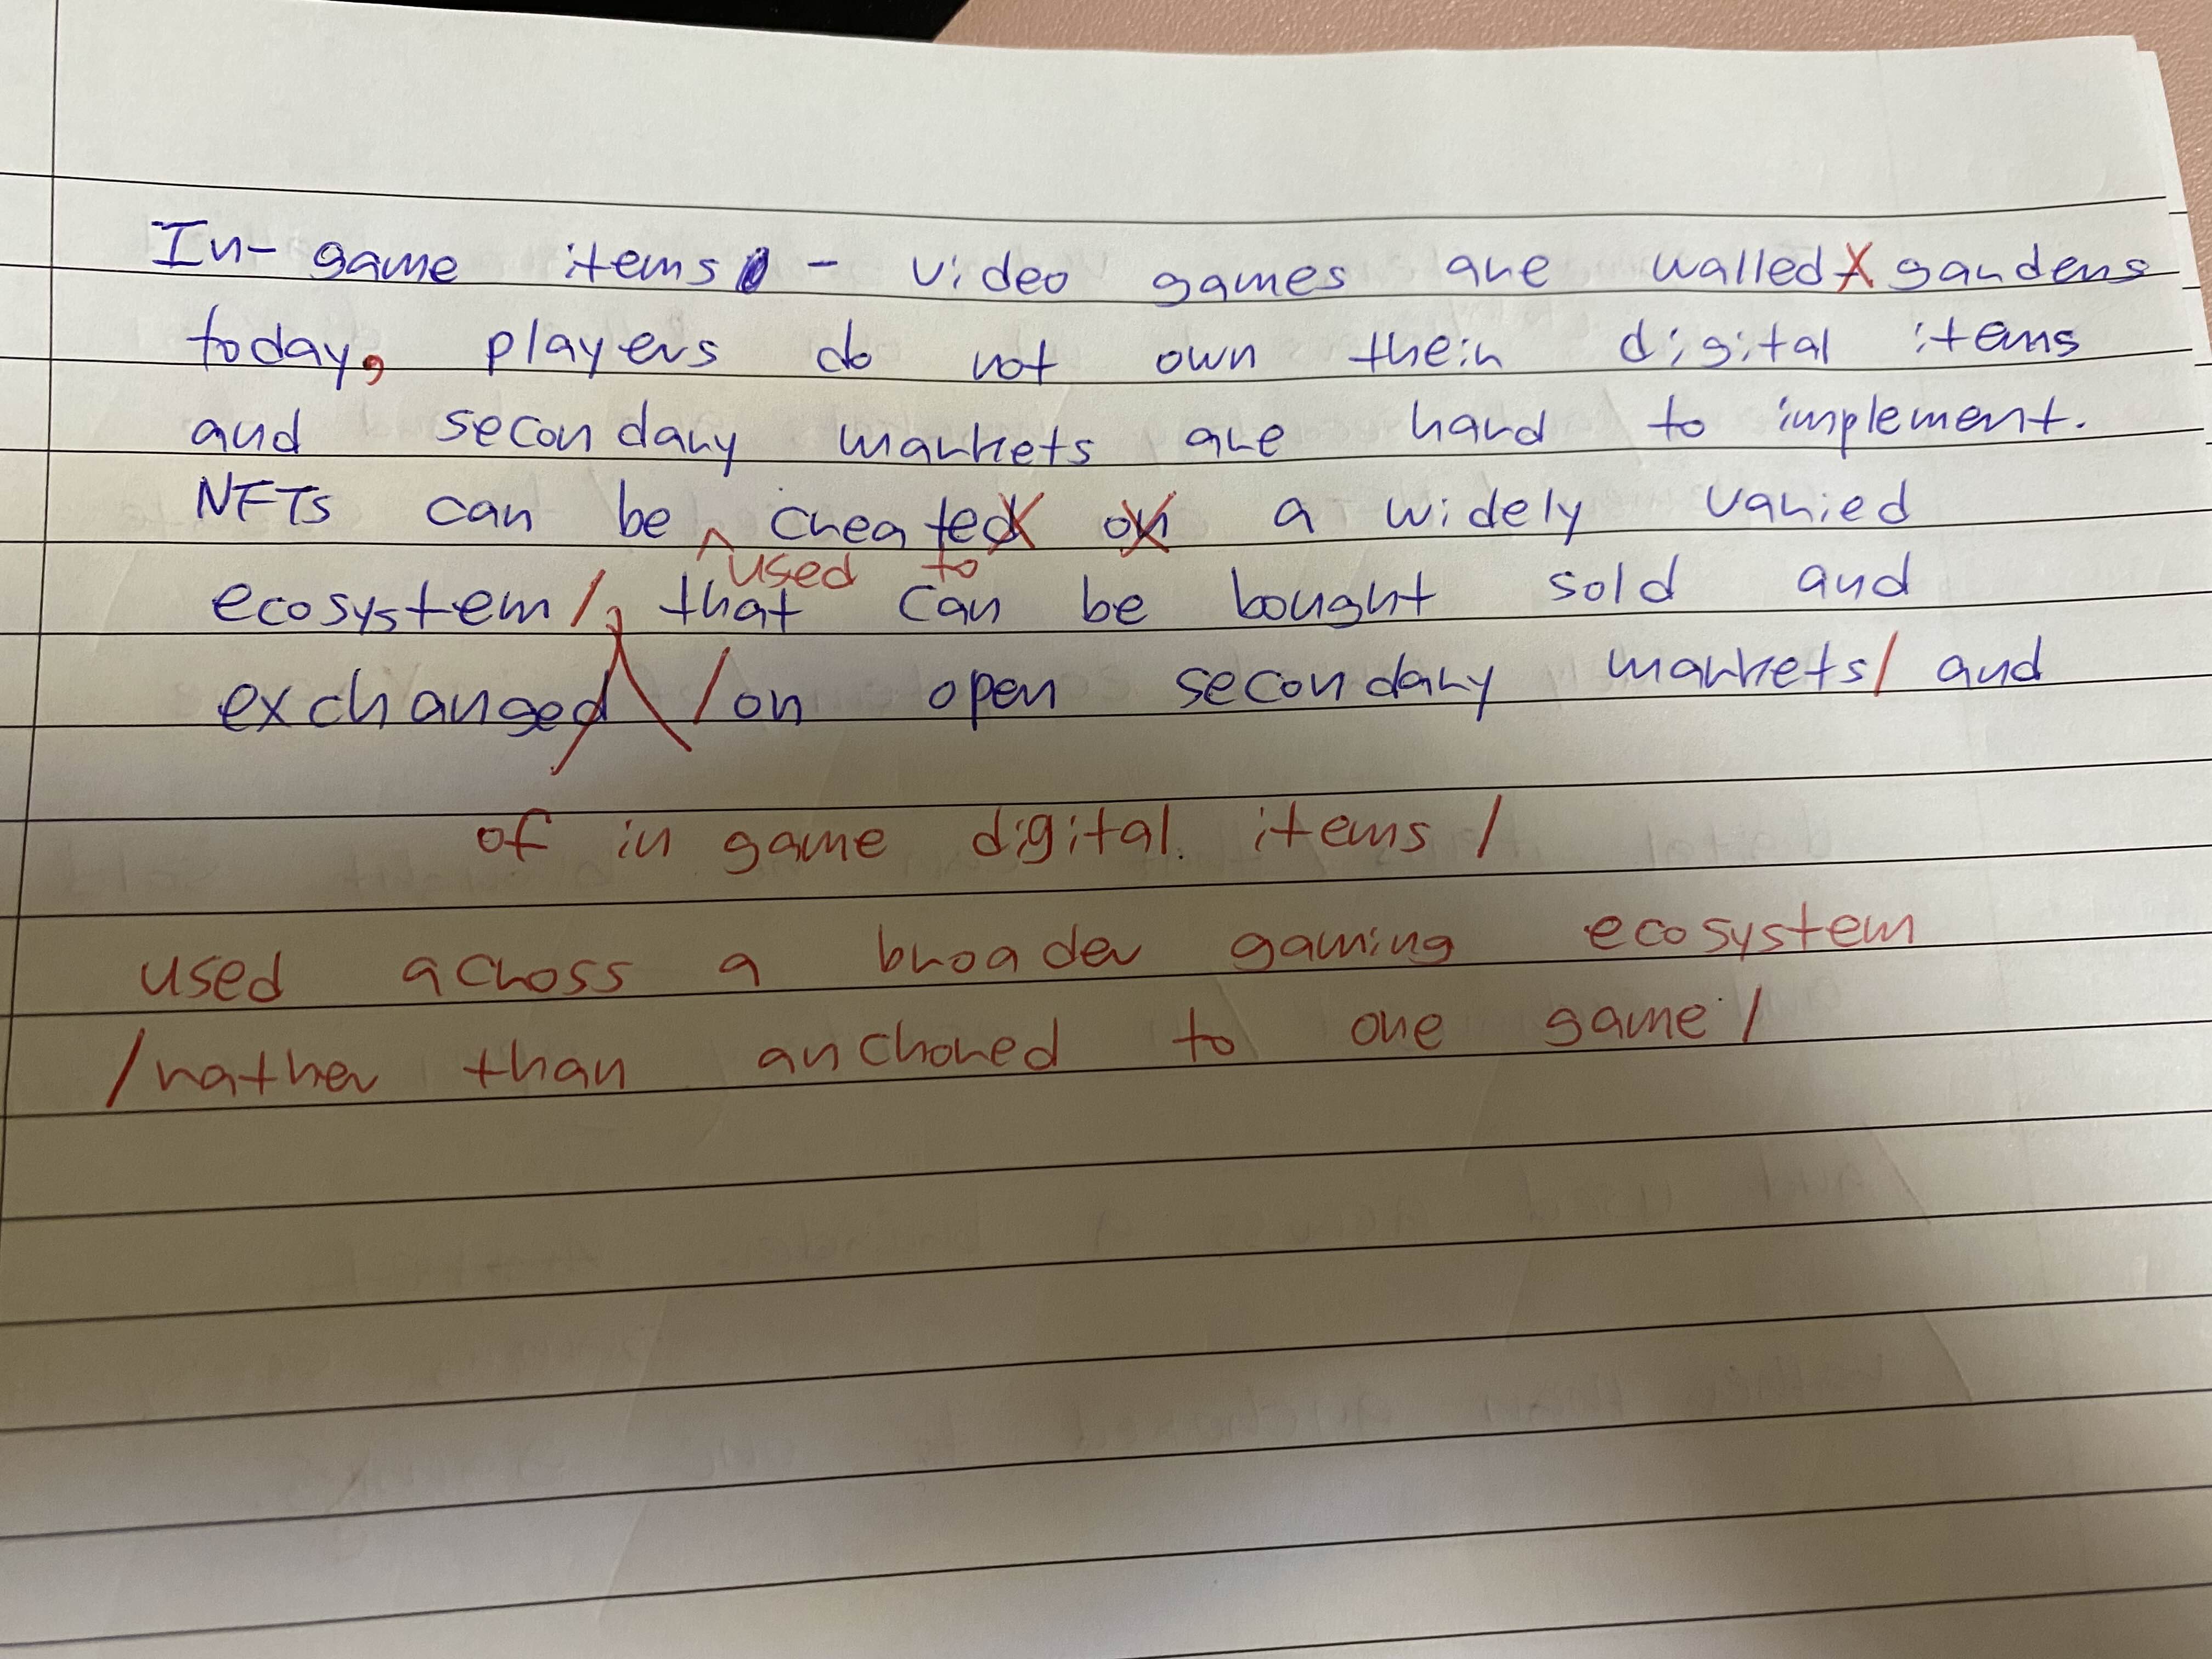 In-game items - video games are walled gardens
today, players do not own their digital items
and secondary markets are hard to implement.
NFTs can be ^ created on a widely varied
used to
ecosystem/, that can be bought sold and
exchanged /on open secondary markets/ and
of in game digital items /
used across a broader gaming ecosystem
/rather than anchored to one game/